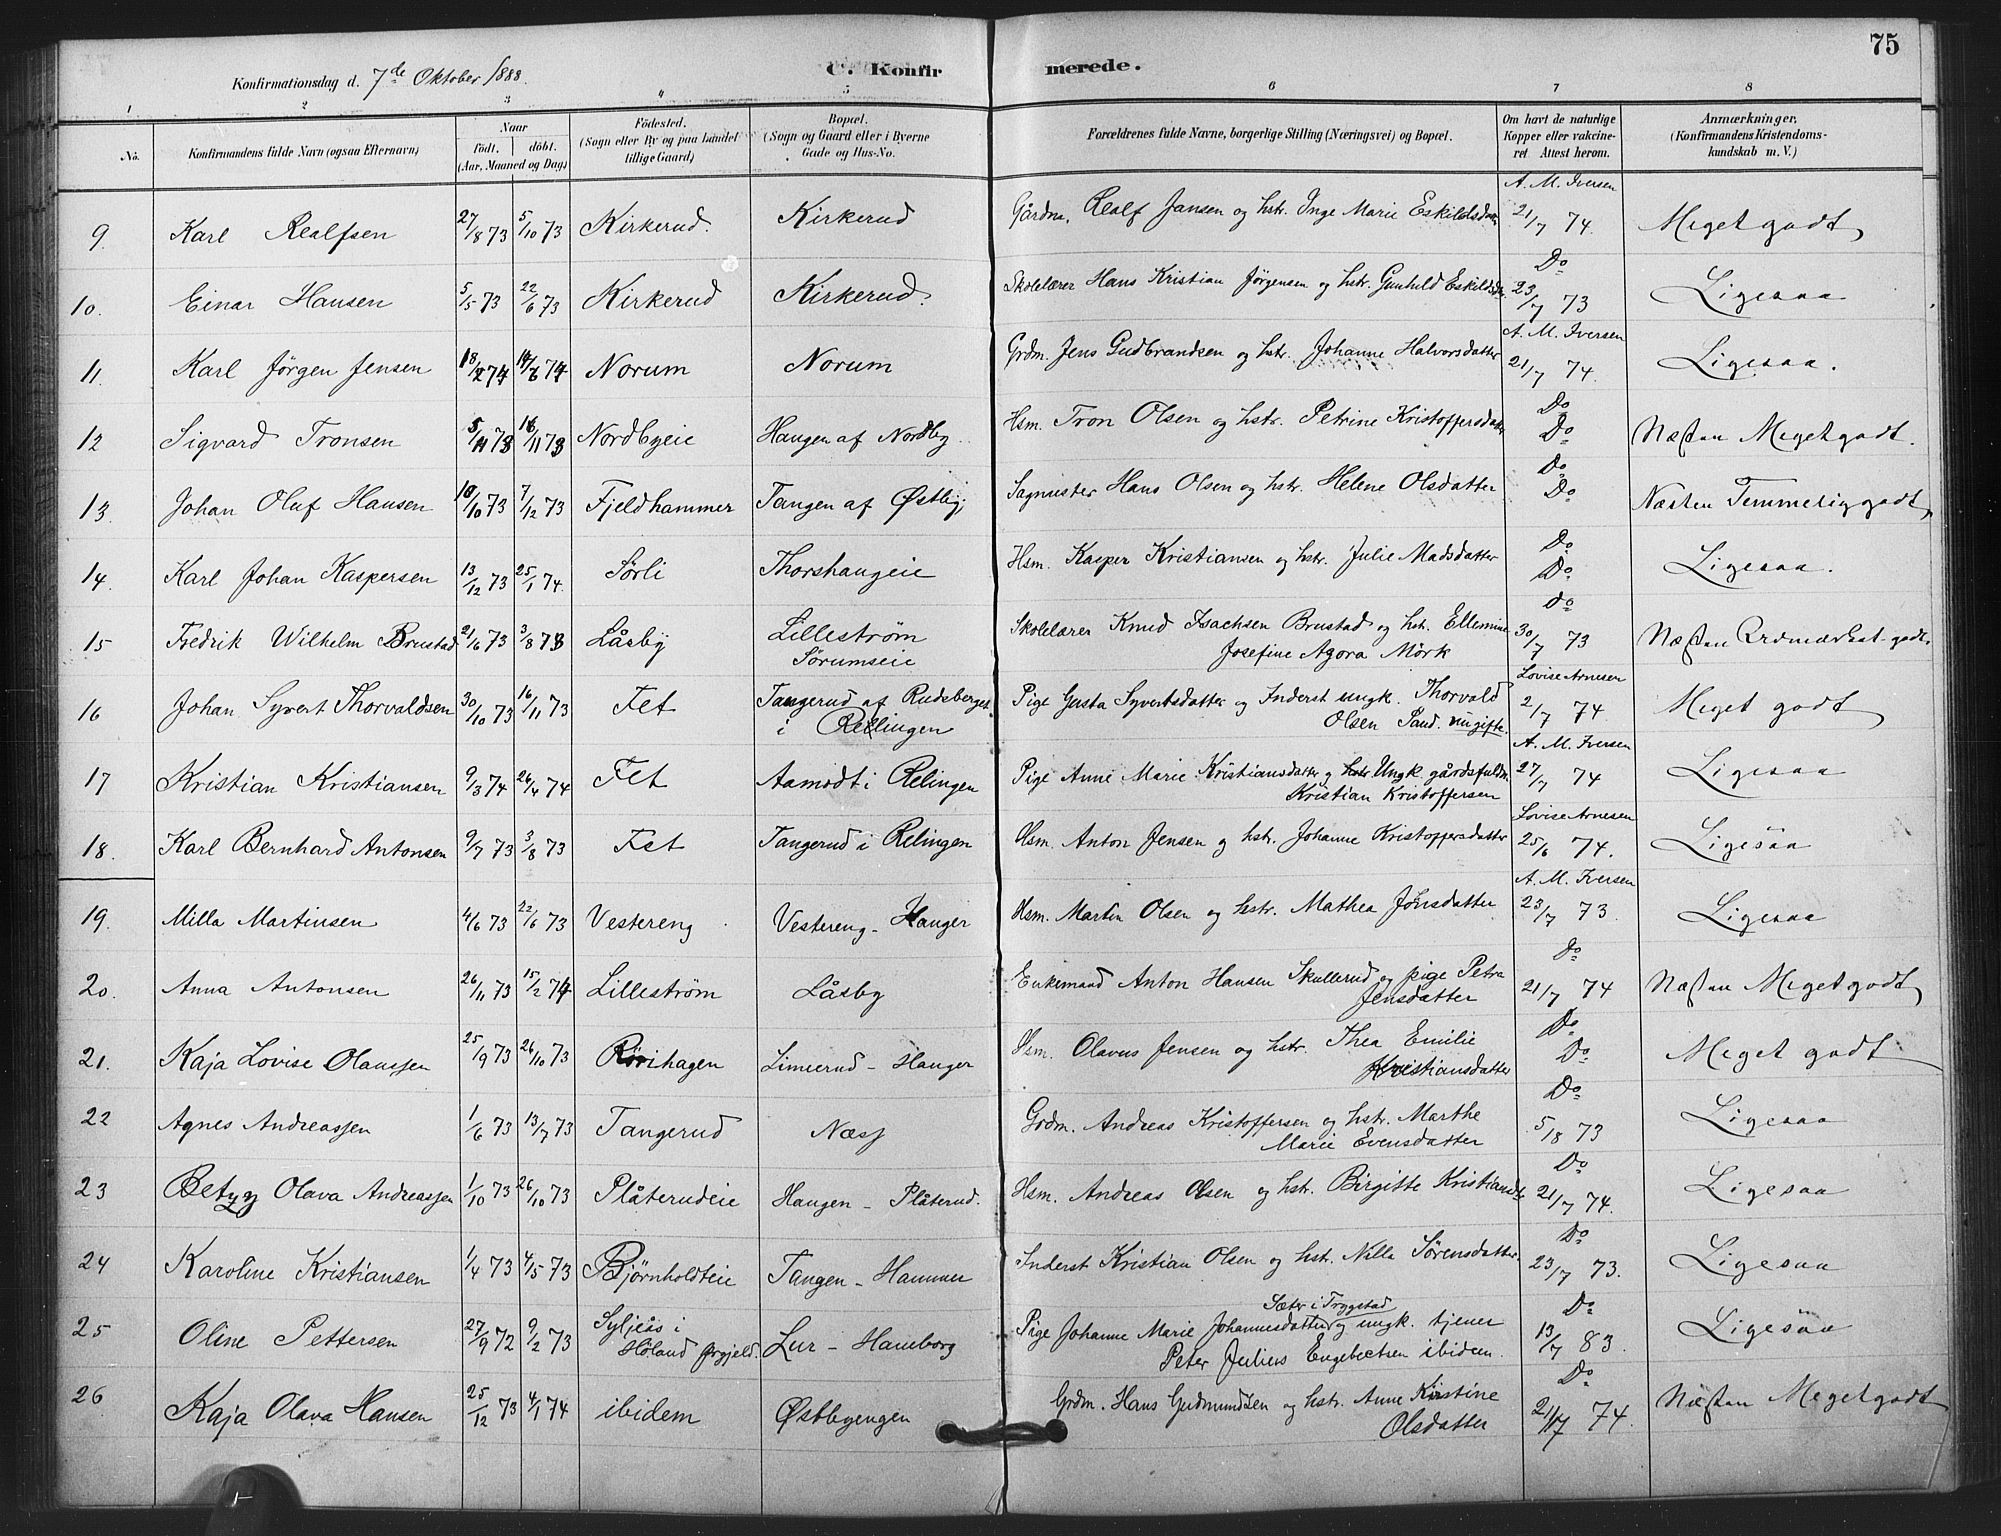 75
Konfirmationsdag d. 7de Oktober 1888.
C. Konfirmerede.
1 2 3 4 5 6 7 8
No. Konfirmandens fulde Navn (ogsaa Efternavn) Naar födt. döbt. (Aar, Maaned og Dag) Födested. (Sogn eller By og paa Landet tillige Gaard) Bopæl. (Sogn og Gaard eller i Byerne Gade og Hus-No. Forældrenes fulde Navne, borgerlige Stilling (Næringsvei) og Bopæl. Om havt de naturlige Kopper eller vakcineret. Attest herom. Anmærkninger, (Konfirmandens Kristendomskundskab m. V.)
9 Karl Realfsen 27/8 73 5/10 73 Kirkerud. Kirkerud Gårdm. Realf Jansen og hstr. Inge Marie Eskildsdatt A. M. Iversen 21/7 74. Meget godt
10. Einar Hansen 5/5 73 22/6 73 Kirkerud Kirkerud. Skolelærer Hans Kristian Jørgensen og hstr. Gunhild Eskildsd. Do 23/7 73 Ligesaa
11. Karl Jörgen Jensen 18/2 74 19/6 74 Norum Norum Grdm. Jens Gudbrandsen og hstr. Johanne Halvorsdatter A. M. Iversen 21/7 74. Ligesaa.
12 Sigvard Tronsen 5/11 73 16/11 73 Nordbyeie Haugen af Nordby. Hsm. Tron Olsen og hstr. Petrine Kristoffersdatter Do Do Næstan Megetgodt.
13. Johan Oluf Hansen 18/10 73 7/12 73 Fjeldhammer Tangen af Østby; Sagmester Hans Olsen og hstr. Helene Olsdatter Do Do Næsten Temmeliggodt
14. Karl Johan Kaspersen 13/12 73 25/1 74. Sørli Thorshaugeie Hsm. Kasper Kristiansen og hstr. Julie Madsdatter Do Do Ligesaa.
15 Fredrik Wilhelm Brustad 21/6 73 3/8 73 Låsby Lilleström Sørumseie Skolelærer Knud Isachsen Brustad og hst. Ellemine Josefine Agora Mörk Do 30/7 73 Næstan Udmærket-godt.
16 Johan Syvert Thorvaldsen 30/10 73 16/11 73 Fet Tangerud af Rudsberget i Relingen Pige Gusta Syvertsdatter og Inderst ungk. Thorvald Olsen Sand. ugifte. Lovise Arnesen 2/7 74. Meget godt
17 Kristian Kristiansen 9/3 74 26/4 74 Fet Aamodt i Relingen Pige Anne Marie Kristiansdatter og Ungk gårdsfuldm. Kristian Kristoffersen A. M. Iversen 27/7 74 Ligesaa
18. Karl Bernhard Antonsen 9/7 73 3/8 73 Fet Tangerud i Relingen Hsm. Anton Jensen og hstr. Johanne Kristoffersdatter Lovise Arnesen 25/6 74. Ligesaa
19. Milla Martinsen 4/6 73 22/6 73 Vestereng Vestereng - Hauger Hsm. Martin Olsen og hstr. Mathea Jönsdatter A. M. Iversen 23/7 73 Ligesaa
20. Anna Antonsen 26/11 73 15/2 74 Lilleström Låsby Enkemand Anton Hansen Skullerud og pige Petra Jensdatter Do 21/7 74 Næstan Megetgodt
21. Kaja Lovise Olaussen 25/9 73 26/10 73 Rörihagen Limerud - Hauger Hsm. Olavus Jensen og hstr. Thea Emilie Kristiansdatter Do Do Meget godt
22 Agnes Andreassen 1/6 73 13/7 73 Tangerud Næss Grdm. Andreas Kristoffersen og hstr. Marthe Marie Evensdatter Do 5/18 73 Ligesaa
23 Betzy Olava Andreassen 1/10 73 26/10 73 Plåterudeie Haugen - Plåterud. Hsm. Andreas Olsen og hstr. Birgitte Kristiansdt Do 21/7 74. Ligesaa
24 Karoline Kristiansen 1/4 73 4/5 73 Bjørnholdteie Tangen - Hammer Inderst Kristian Olsen og hstr. Nilla Sørensdatter. Do 23/7 73. Ligesaa
25 Oline Pettersen 27/9 72 9/2 73 Syljeås i Höland prgjeld. Lur - Haneborg Pige Johanne Marie Johannesdatter Sæter i Trygstad og ungk. tjener Peter Julius Engebretsen ibidem. Do 13/7 83. Ligesaa
26 Kaja Olava Hansen 25/12 73 4/1 74 ibidem Østbyengen Grdm. Hans Gudmundsen og hstr. Anne Kirstine Olsdatter Do 21/7 74. Næstan Megetgodt